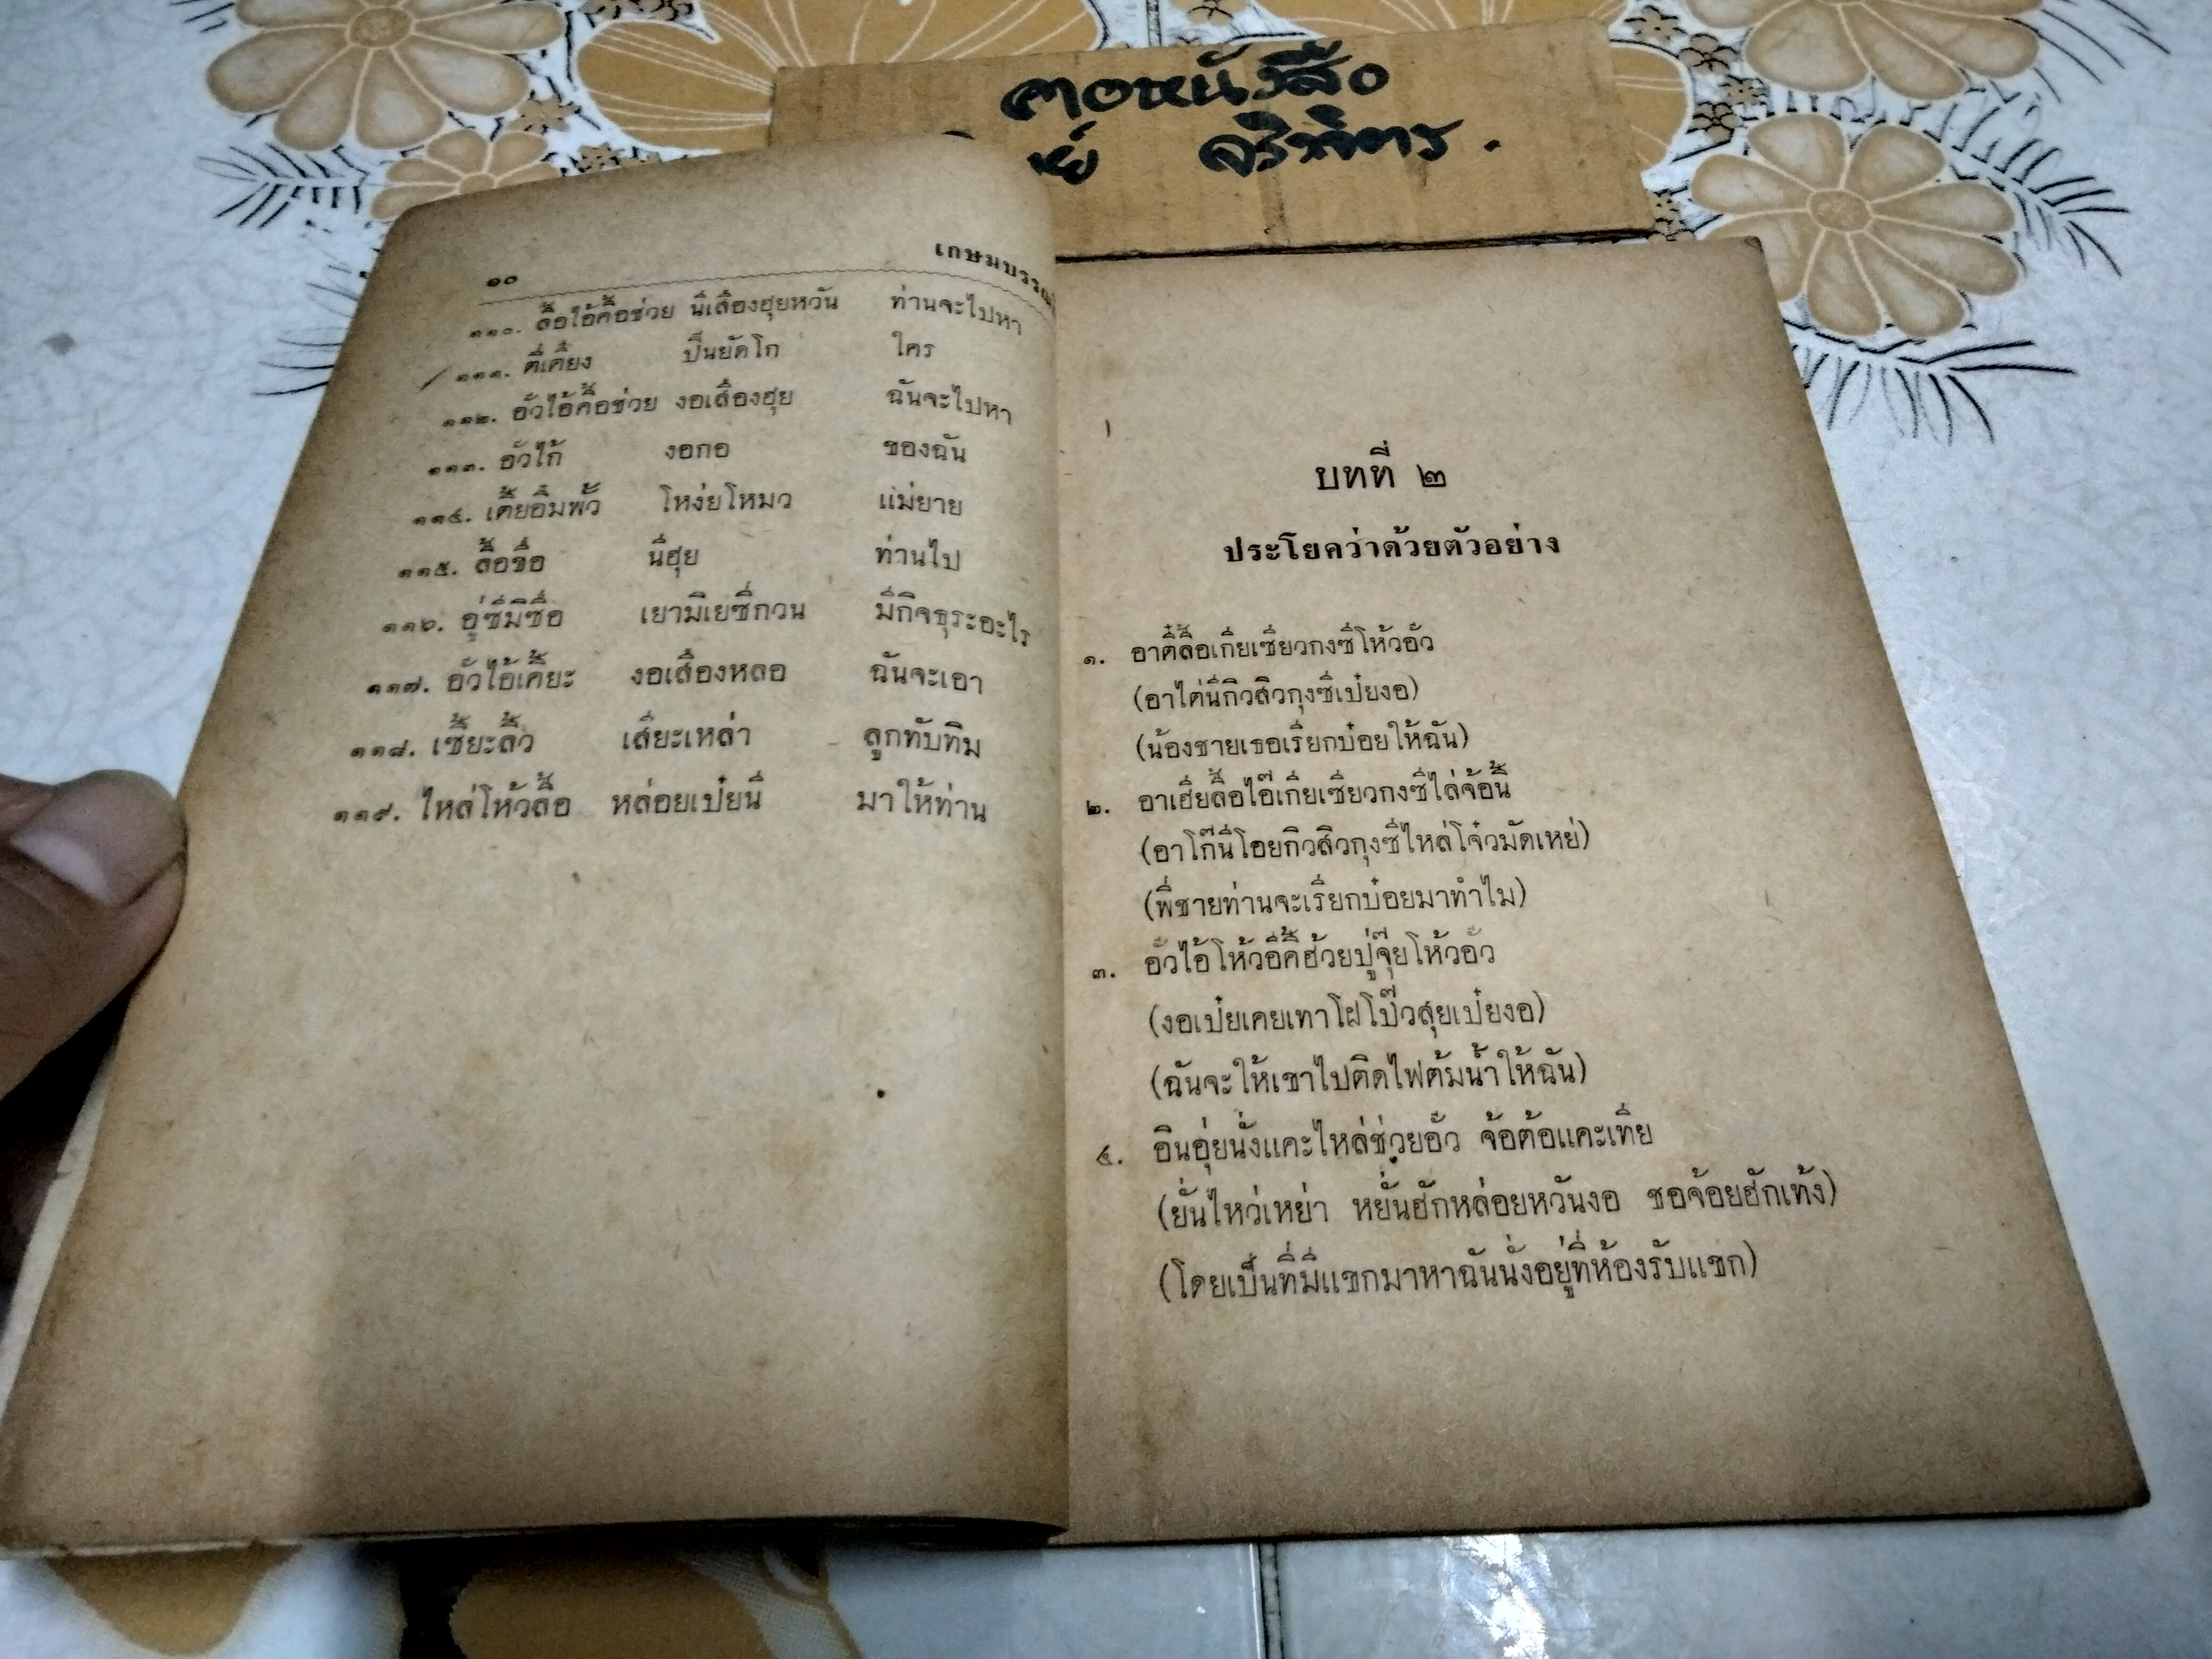 คอหนังสือ
๑๐
เกษมบรรณ
๑๑๐. ลื้อไอ้คื้อช่วย นี่เสื่องฮุยหวัน ท่านจะไปหา
๑๑๑. ตี่เคี้ยง ปิ๋นยัดโก ใคร
๑๑๒. อั๊วไอ้คื้อช่วย งอเสื่องฮุย ฉันจะไปหา
๑๑๓. อั๊วไก๊ งอกอ ของฉัน
๑๑๔. เตี้ยอิ๊มพั้ว โหง่ยโหมว แม่ยาย
๑๑๕. ลื้อขื่อ นี่ฮุย ท่านไป
๑๑๖. อู่ซี่มิซื่อ เยามิเยซี่กวน มีกิจธุระอะไร
๑๑๗. อั๊วไอ้เคี้ยะ งอเสื่องหลอ ฉันจะเอา
๑๑๘. เซี้ยะลิ้ว เสี่ยะเหล่า ลูกทับทิม
๑๑๙. ไหล่โห้วลื้อ หล่อยเป๋ยนี่ มาให้ท่าน
บทที่ ๒
ประโยคว่าด้วยตัวอย่าง
๑. อาตี๋ลื้อเกี่ยเซี่ยวกงซีโห้วอั๊ว
(อาไต๋นี่กิวสิวกุงซี่เป๋ยงอ)
(น้องชายเธอเรียกบ๋อยให้ฉัน)
๒. อาเฮี่ยลื้อไอ๊เกี่ยเซี่ยวกงซีไล่จ้อนี้
(อาโก๊นี่โอยกิวสิวกุงซี่ไหล่โจ๋วมัดเหย่)
(พี่ชายท่านจะเรียกบ๋อยมาทำไม)
๓. อั๊วไอ้โห้วอีคี้ฮ้วยปู่จุ๊ยโห้วอั๊ว
(งอเป๋ยเคยเทาโฝโป๊วสุยเป๋ยงอ)
(ฉันจะให้เขาไปติดไฟต้มน้ำให้ฉัน)
๔. อินอุ่ยนั่งแคะไหล่ช่วยอั๊ว จ้อต้อแคะเทีย
(ยั่นไหว่เหย่า หยั่นฮักหล่อยหวันงอ ชอจ้อยฮักเท้ง)
(โดยเป็นที่มีแขกมาหาฉันนั่งอยู่ที่ห้องรับแขก)